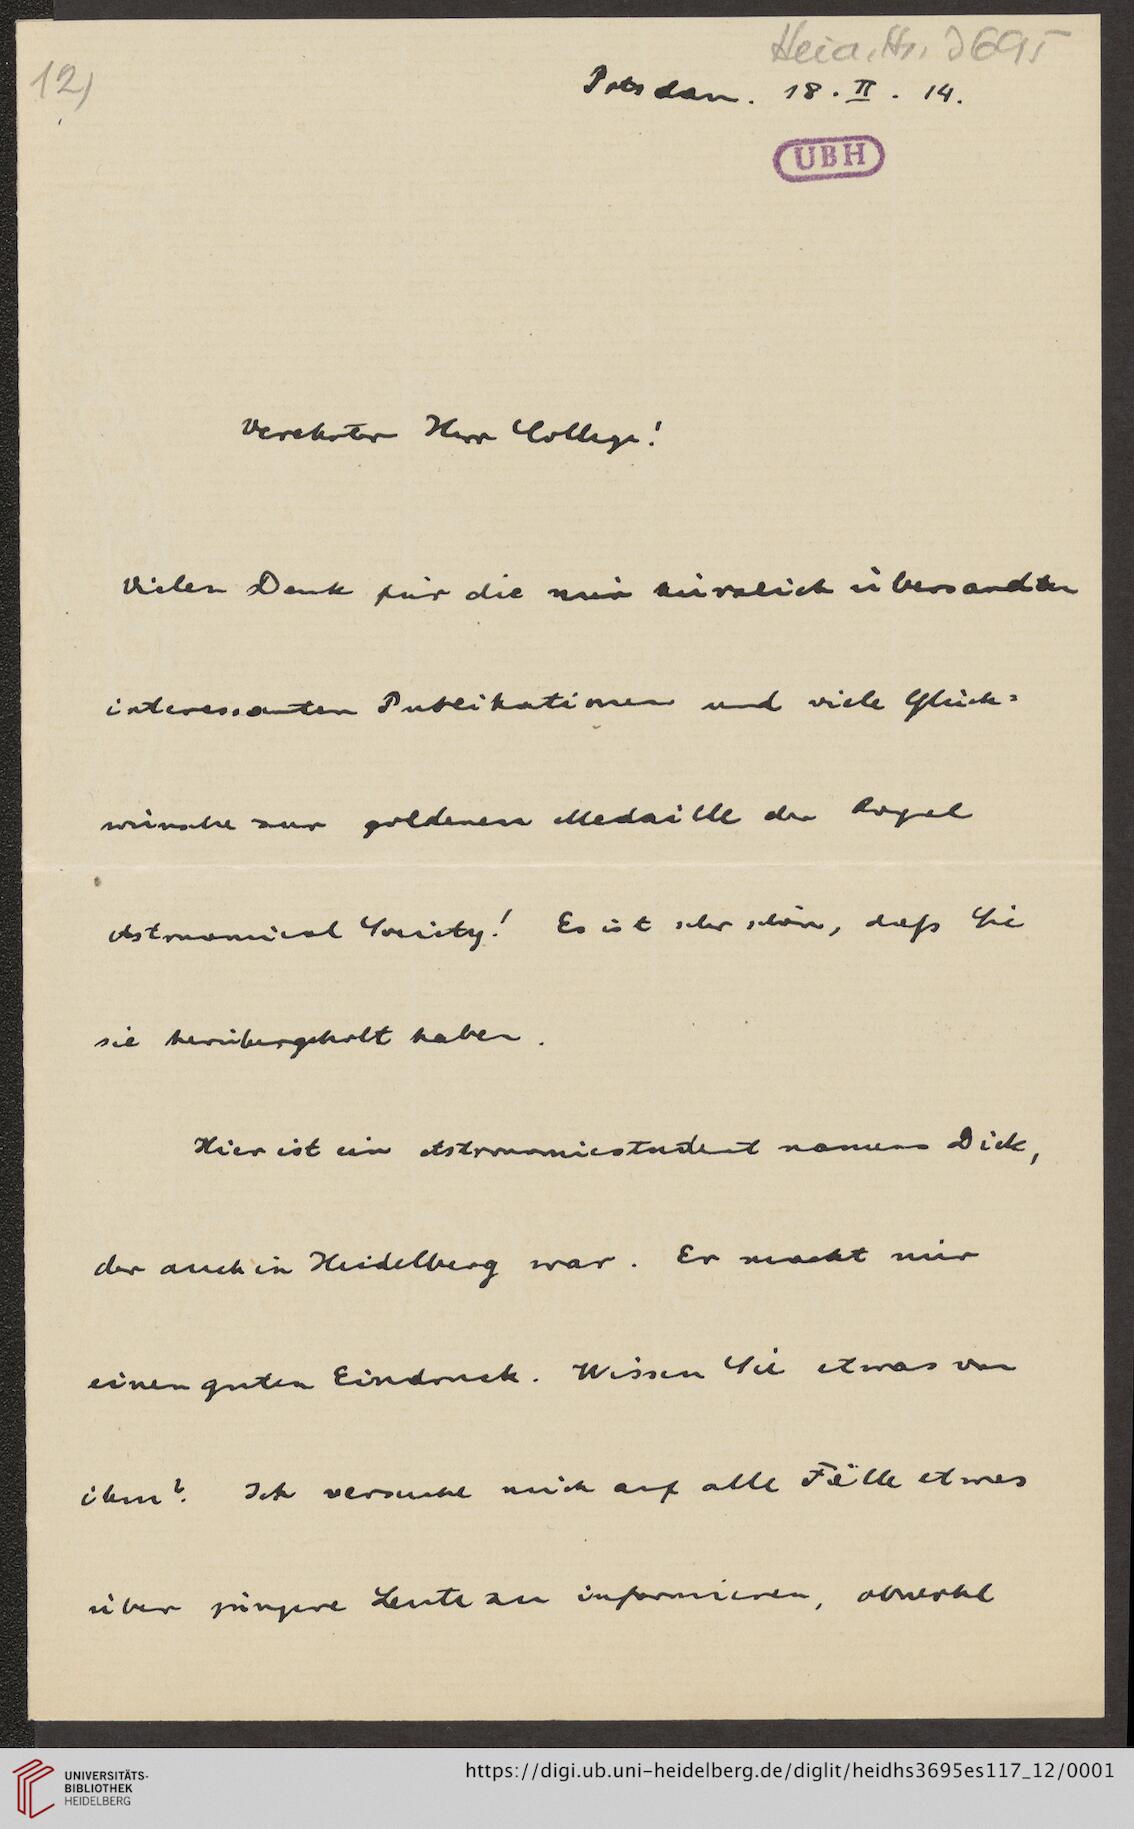 Heid. Hs. 3695
12)
Potsdam. 18. II. 14.
UBH
Verehrter Herr College!
Vielen Dank für die mir kürzlich übersandten
interessanten Publikationen und viele Glück=
wünsche zur goldenen Medaille der Royal
Astronomical Society! Es ist sehr schön, daß Sie
sie herübergeholt haben.
Hier ist ein Astronomiestudent namens Dick,
der auch in Heidelberg war. Er macht mir
einen guten Eindruck. Wissen Sie etwas von
ihm? Ich versuche mich auf alle Fälle etwas
über jüngere Leute zu informieren, obwohl
UNIVERSITÄTS-
BIBLIOTHEK
HEIDELBERG
https://digi.ub.uni-heidelberg.de/diglit/heidhs3695es117_12/0001